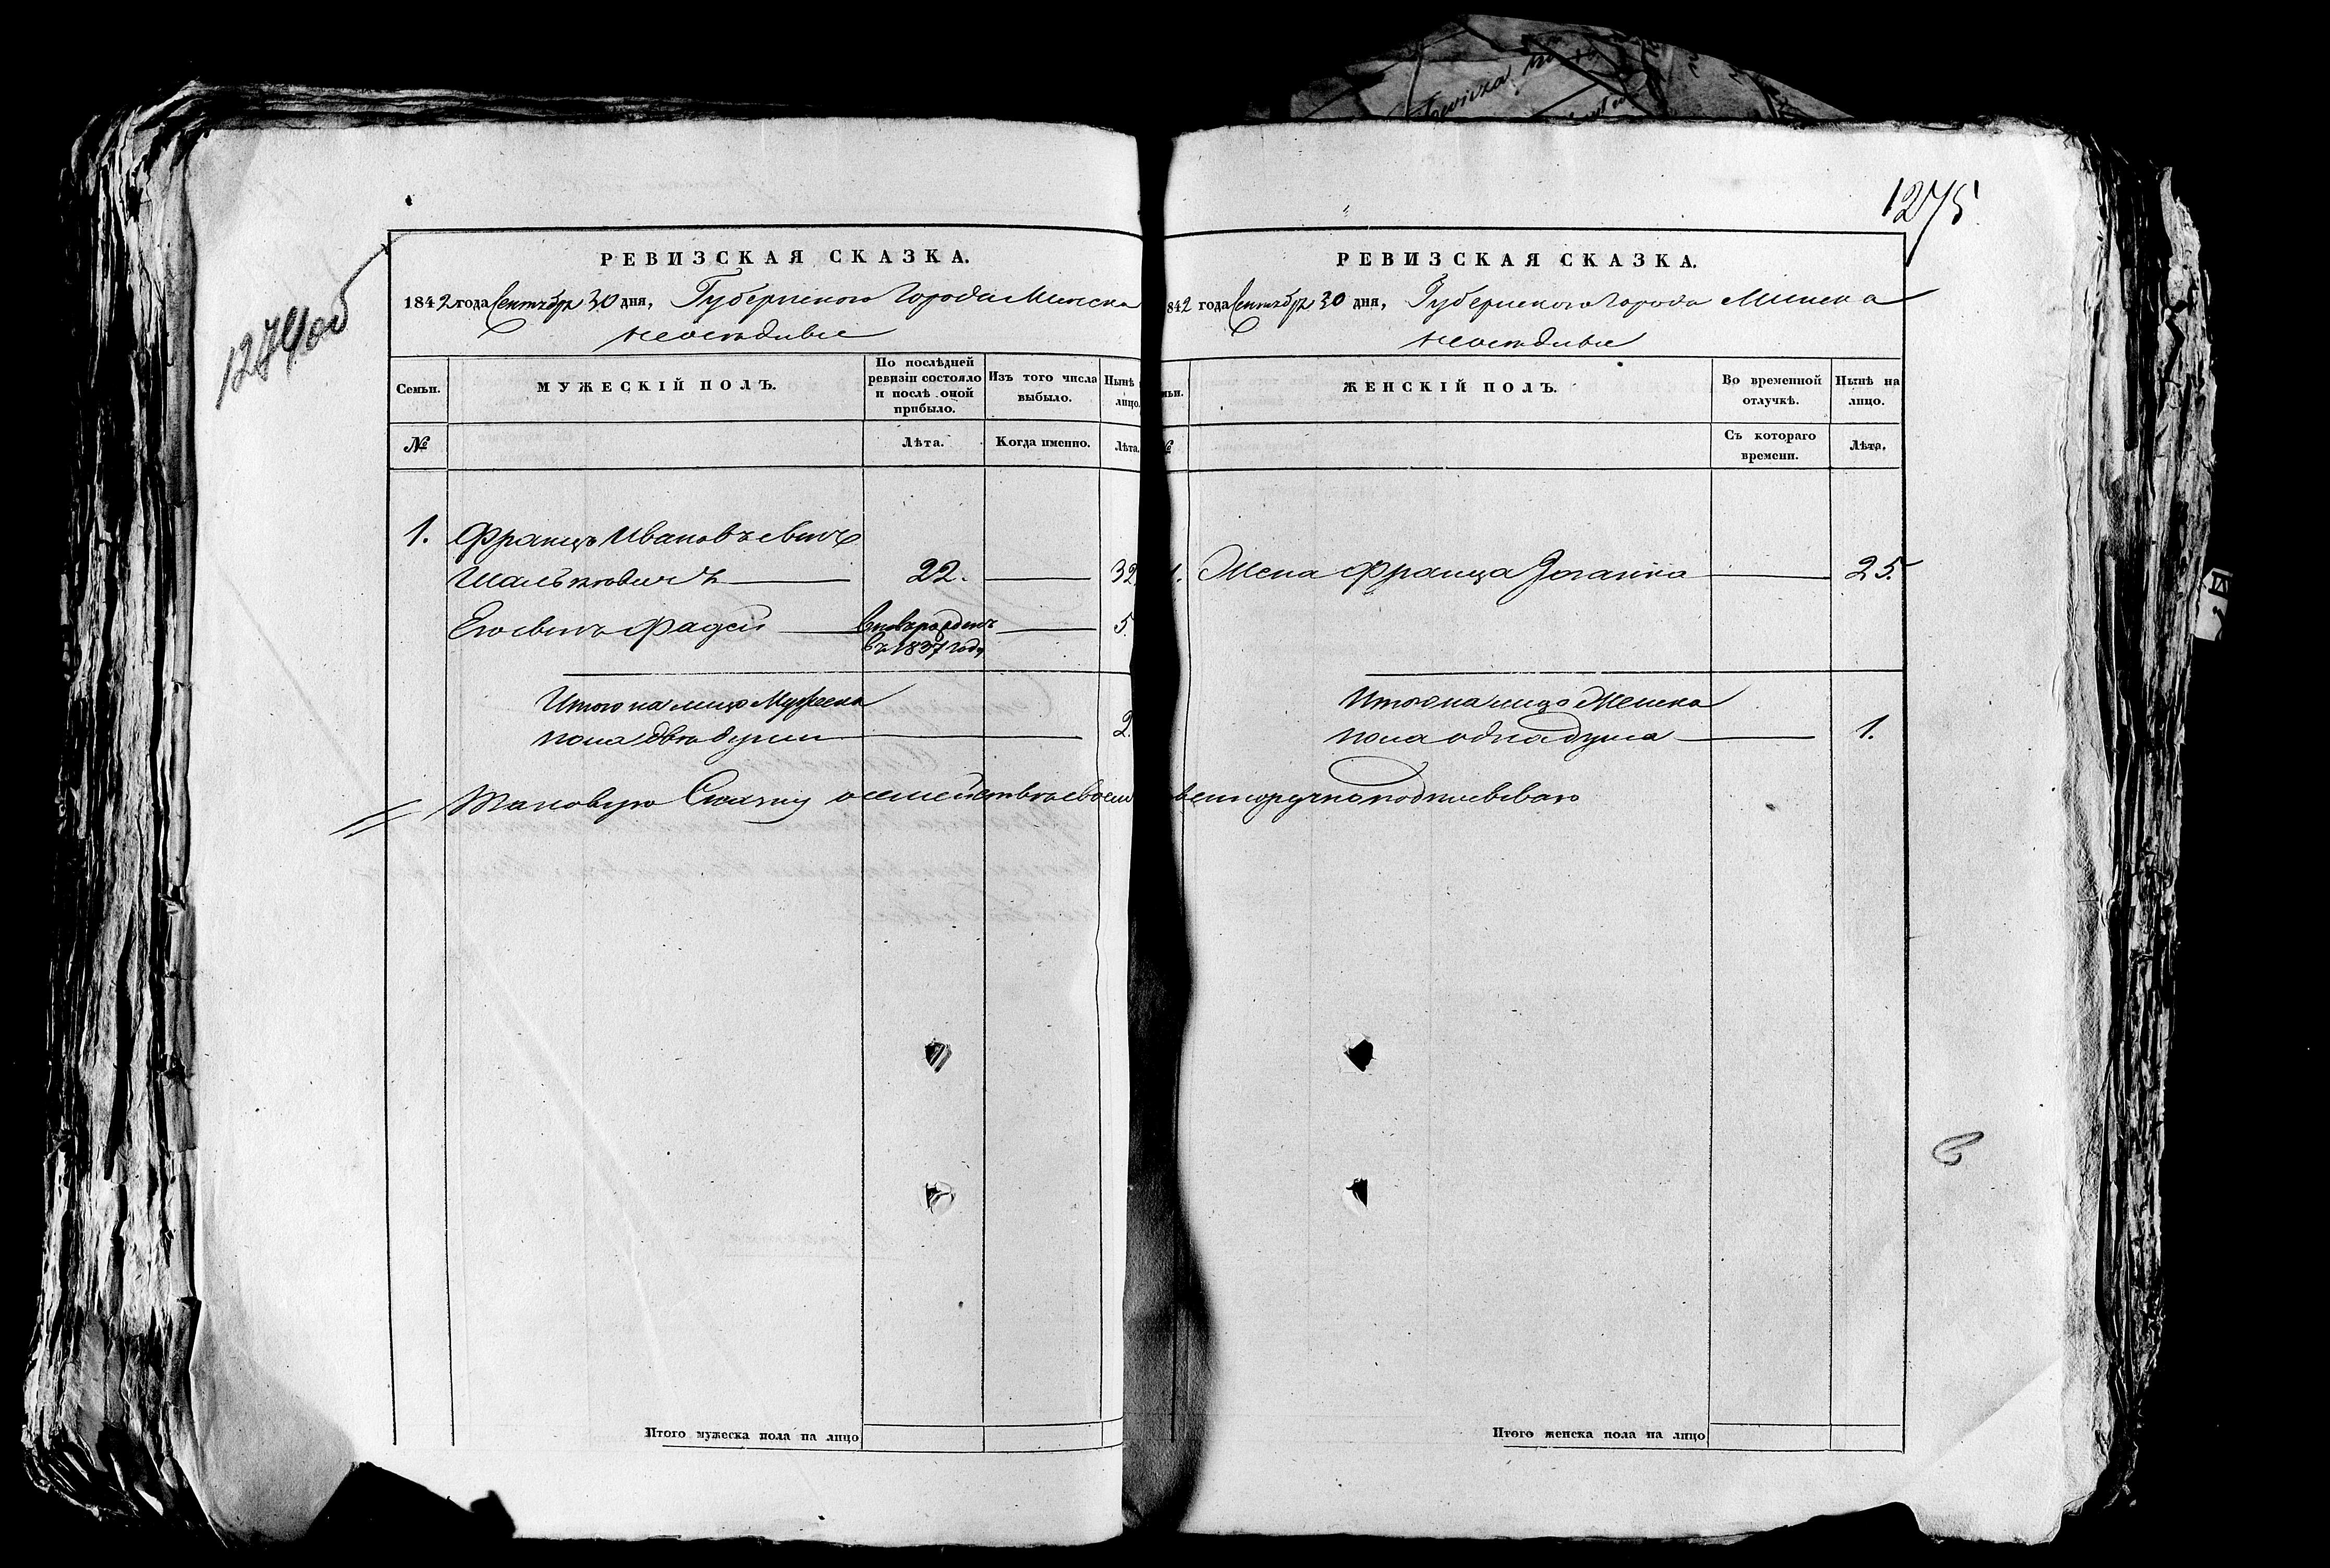 1274 об
РЕВИЗСКАЯ СКАЗКА.
1842 года Сентября 30 дня, Губернскаго Города Минска
неоседлые
Семьи.
МУЖЕСКІЙ ПОЛЪ.
По послѣдней ревизіи состояло и послѣ оной прибыло.
Изъ того числа выбыло.
Нынѣ
лицо.
№
Лѣта.
Когда именно.
Лѣта.
1. Францъ Иванов сынъ
Шалькевичъ 22. 32
Его сынъ Фадей 5.
въ 1837 году
Итого на лицо Мужеска
пола двѣ души 2.
Таковую Сказку о семействѣ своем
Итого мужеска пола на лицо
1275
РЕВИЗСКАЯ СКАЗКА.
1842 года Сентября 30 дня, Губернскаго Города Минска
неоседлые
ЖЕНСКІЙ ПОЛЪ.
Во временной отлучкѣ.
Нынѣ на лицо.
Съ котораго времени.
Лѣта.
1. Жена Франца 25.
Итого на лицо Женска
пола одна душа 1.
подписываю
Итого женска пола на лицо